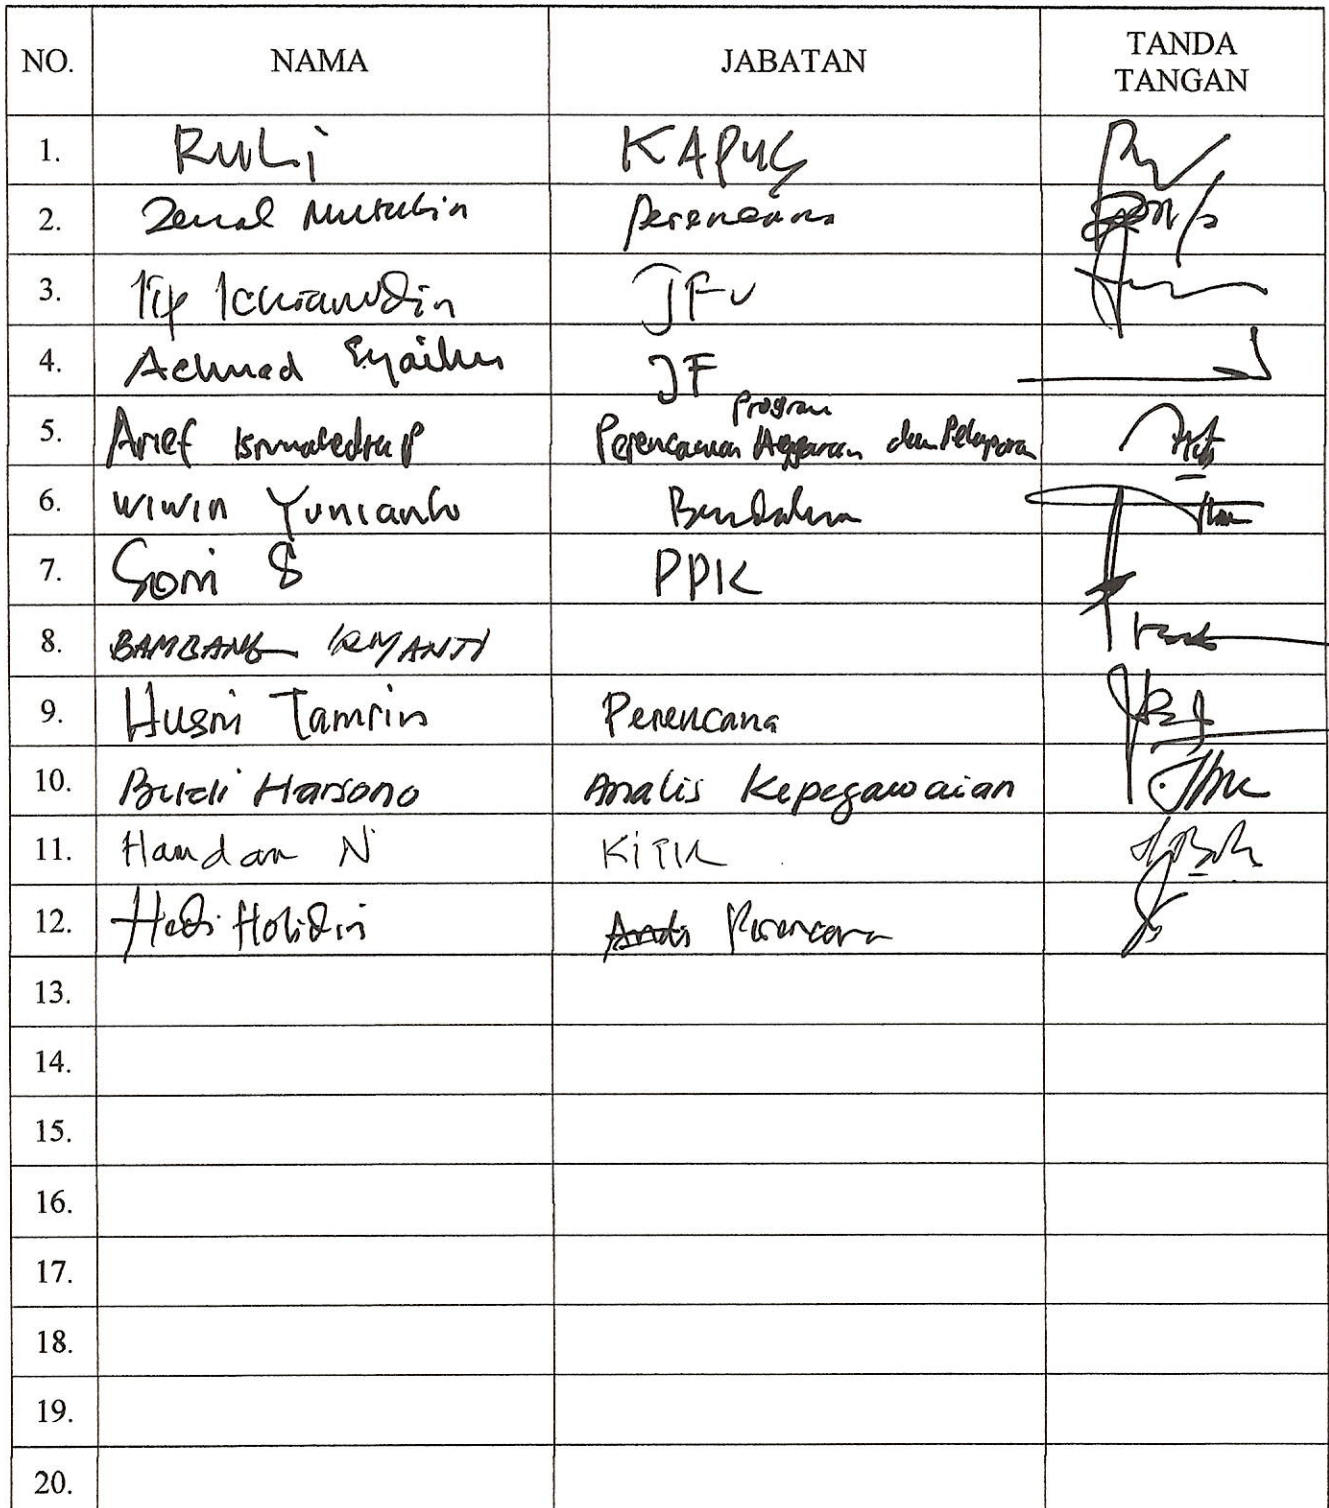 NO. NAMA JABATAN TANDA TANGAN
1. RULi KAPUS
2. Zenal Mutaqin Perencana
3. JFU
4. Achmad JF
5. Arief Program Perencanaan Anggaran dan Pelaporan
6. Wiwin Yunianto Bendahara
7. Soni S PPK
8. BAMBANG
9. Husni Tamrin Perencana
10. Budi Harsono Analis Kepegawaian
11. Hamdan N
12. Hedi Holidin Perencana
13.
14.
15.
16.
17.
18.
19.
20.